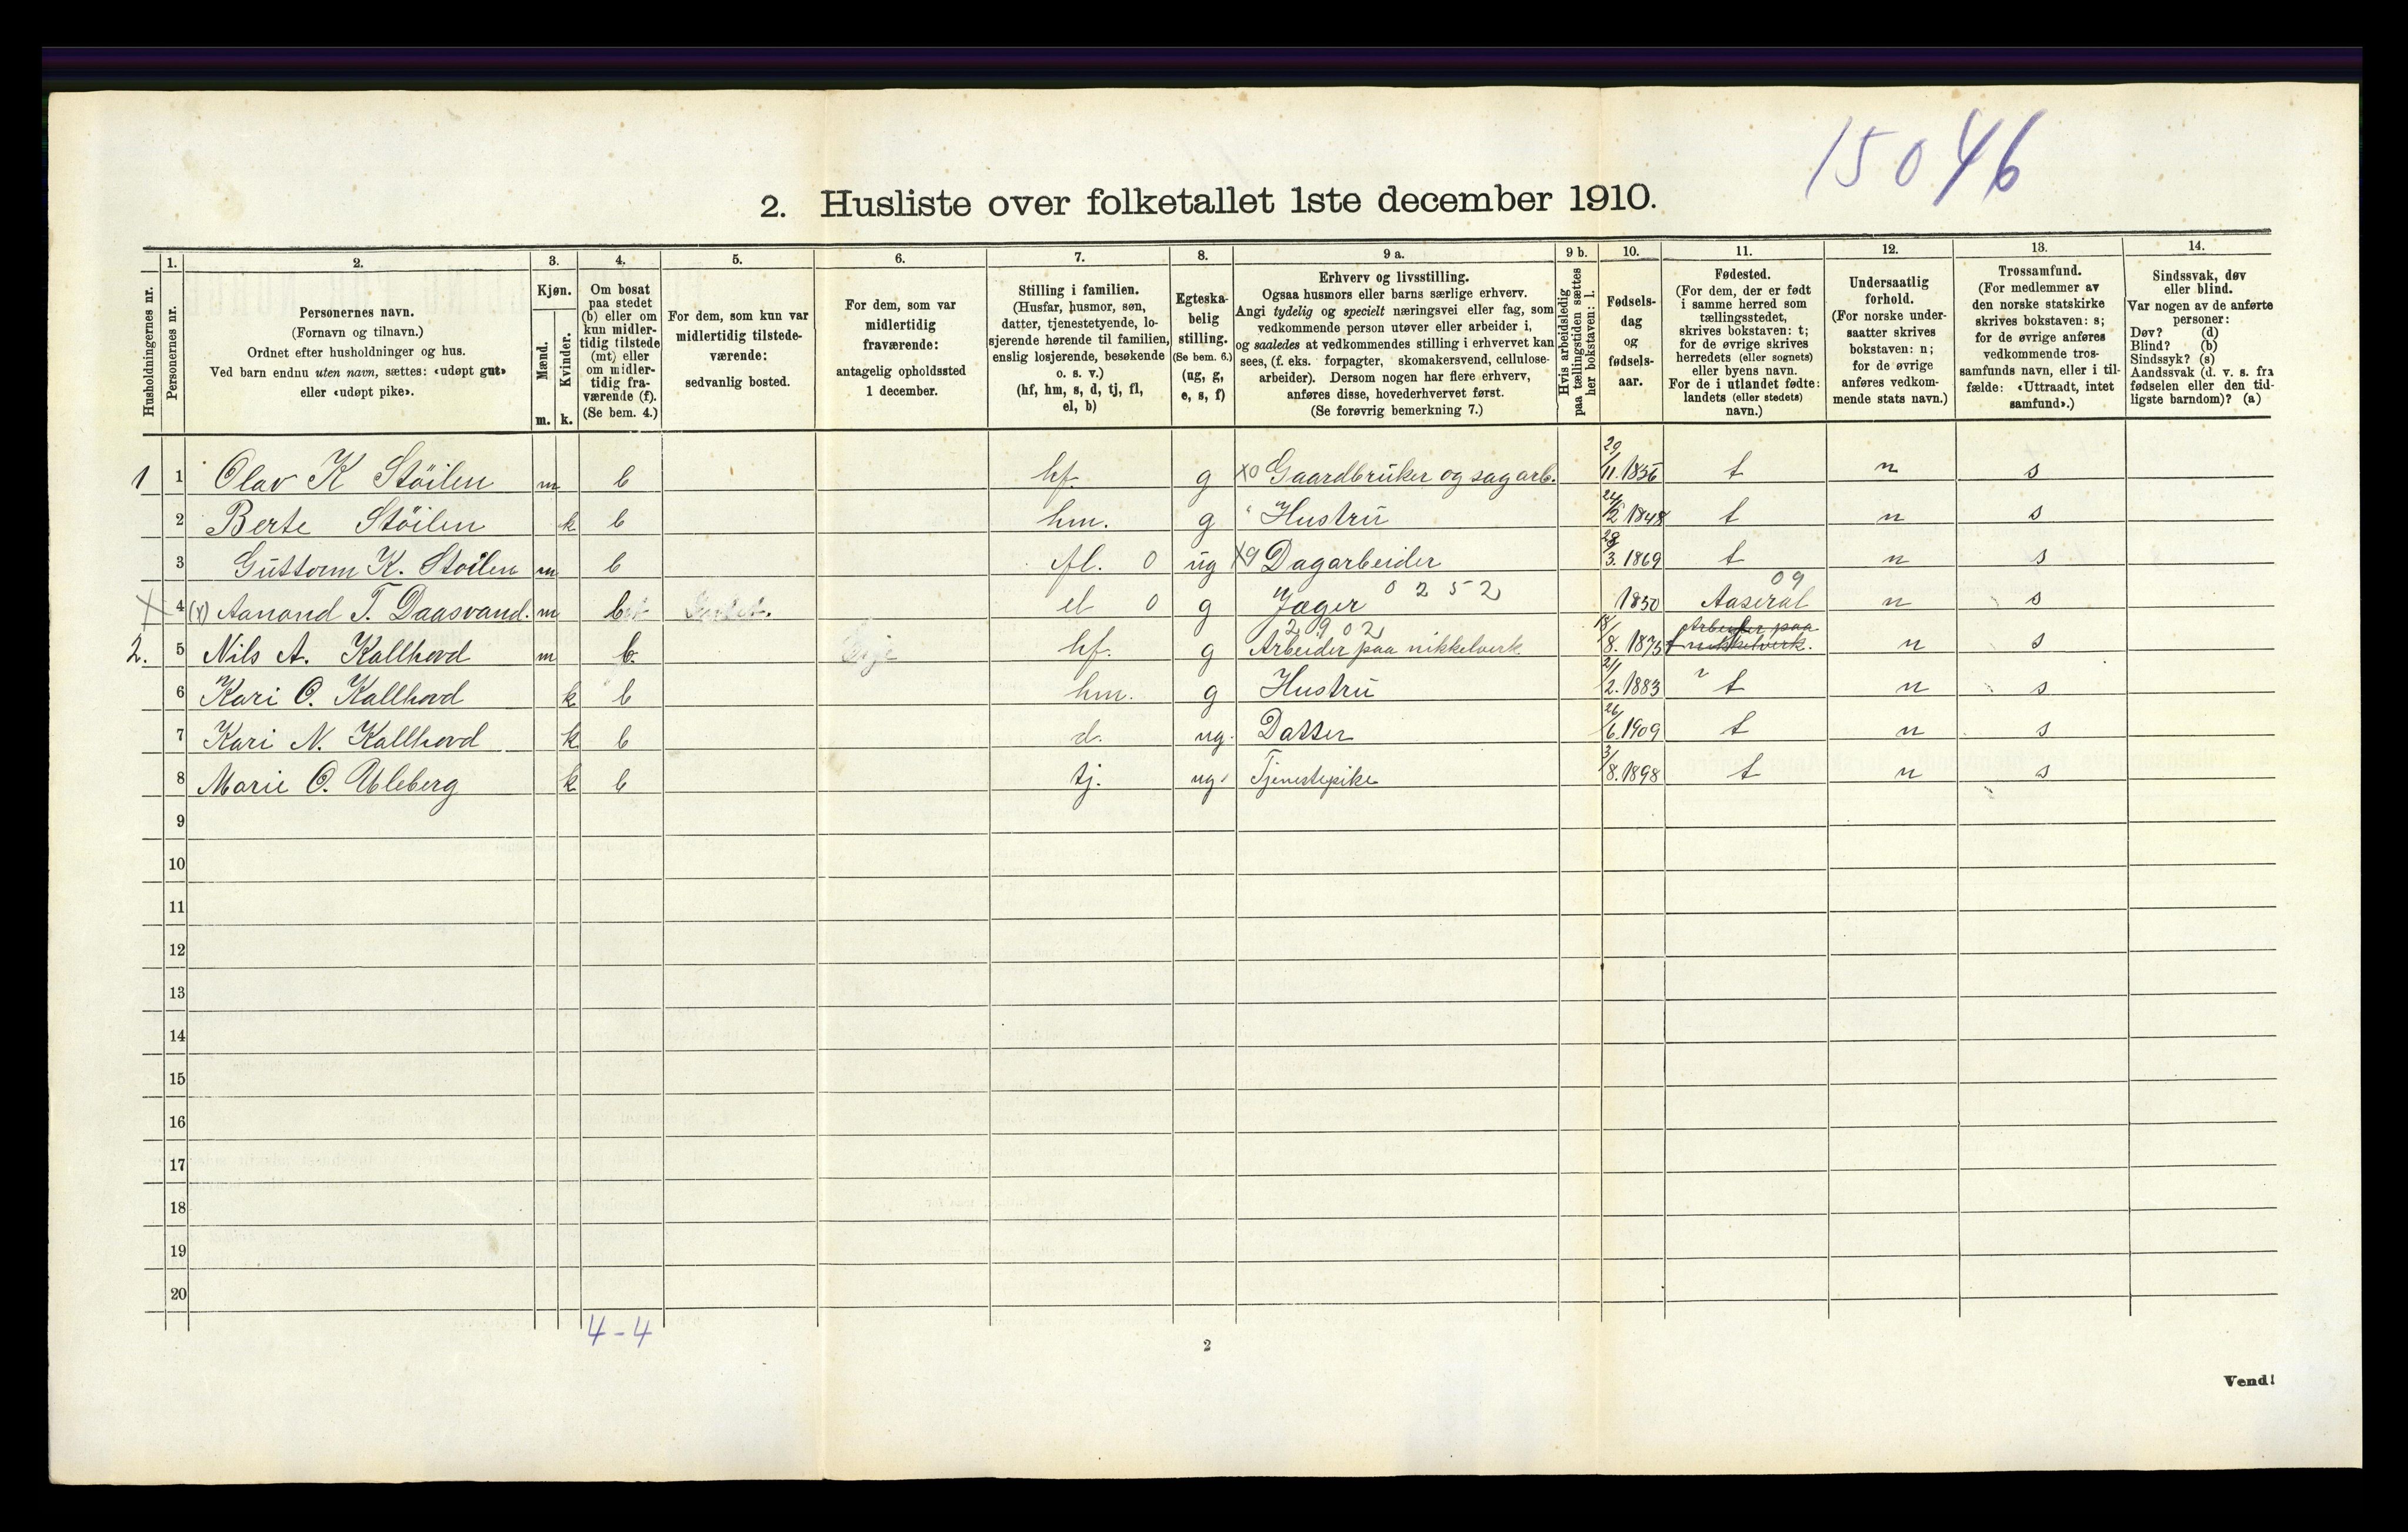 15046
2. Husliste over folketallet 1ste december 1910.
Husholdningernes nr.
1.
Personernes nr.
2.
Personernes navn.
(Fornavn og tilnavn.)
Ordnet efter husholdninger og hus.
Ved barn endnu uten navn, sættes: «udøpt gut»
eller «udøpt pike».
3.
Kjøn.
Mænd.
Kvinder.
m. k.
4.
Om bosat
paa stedet
(b) eller om
kun midler-
tidig tilstede
(mt) eller
om midler-
tidig fra-
værende (f).
(Se bem. 4.)
5.
For dem, som kun var
midlertidig tilstede-
værende:
sedvanlig bosted.
6.
For dem, som var
midlertidig
fraværende:
antagelig opholdssted
1 december.
7.
Stilling i familien.
(Husfar, husmor, søn,
datter, tjenestetyende, lo-
sjerende hørende til familien,
enslig losjerende, besøkende
o. s. v.)
(hf, hm, s, d, tj, fl,
el, b)
8.
Egteska-
belig
stilling.
(Se bem. 6.)
(ug, g,
e, s, f)
9 a.
Erhverv og livsstilling.
Ogsaa husmors eller barns særlige erhverv.
Angi tydelig og specielt næringsvei eller fag, som
vedkommende person utøver eller arbeider i,
og saaledes at vedkommendes stilling i erhvervet kan
sees, (f. eks. forpagter, skomakersvend, cellulose-
arbeider). Dersom nogen har flere erhverv,
anføres disse, hovederhvervet først.
(Se forøvrig bemerkning 7.)
9 b.
Hvis arbeidsledig
paa tællingstiden sættes
her bokstaven: l.
10.
Fødsels-
dag
og
fødsels-
aar.
11.
Fødested.
(For dem, der er født
i samme herred som
tællingsstedet,
skrives bokstaven: t;
for de øvrige skrives
herredets (eller sognets)
eller byens navn.
For de i utlandet fødte:
landets (eller stedets)
navn.)
12.
Undersaatlig
forhold.
(For norske under-
saatter skrives
bokstaven: n;
for de øvrige
anføres vedkom-
mende stats navn.)
13.
Trossamfund.
(For medlemmer av
den norske statskirke
skrives bokstaven: s;
for de øvrige anføres
vedkommende tros-
samfunds navn, eller i til-
fælde: «Uttraadt, intet
samfund».)
14.
Sindssvak, døv
eller blind.
Var nogen av de anførte
personer:
Døv? (d)
Blind? (b)
Sindssyk? (s)
Aandssvak (d. v. s. fra
fødselen eller den tid-
ligste barndom)? (a)
1 1 Olav K Stöilen m b hf. g X0 Gaardbruker og sagarb. t n s
2 Berte Stöilen k b hm. g Hustru 24/2 1848 t n s
3 Guttorm K. Stoilen m b fl. 0 ug X9 Dagarbeider 3. 1869 t n s
X 4 (X) Aanond T. Daasvand. m b el 0 g Jæger 0252 1850 Aaseral 09 n s
2902
2. 5 Nils A. Kallhovd m b. Evje hf. g Arbeider paa nikkelverk 18/8. 1875 t Arbeider paa nikkelverk. n s
6 Kari O. Kallhovd k b hm. g Hustru 21/2. 1883 t n s
7 Kari N. Kallhovd k b d. ug. Datter 26/6. 1909 t n s
8 Marie O. Uleberg k b tj. ug. Tjenestepike 3/8. 1898 t n s
9
10
11
12
13
14
15
16
17
18
19
20
4-4
2
Vend!